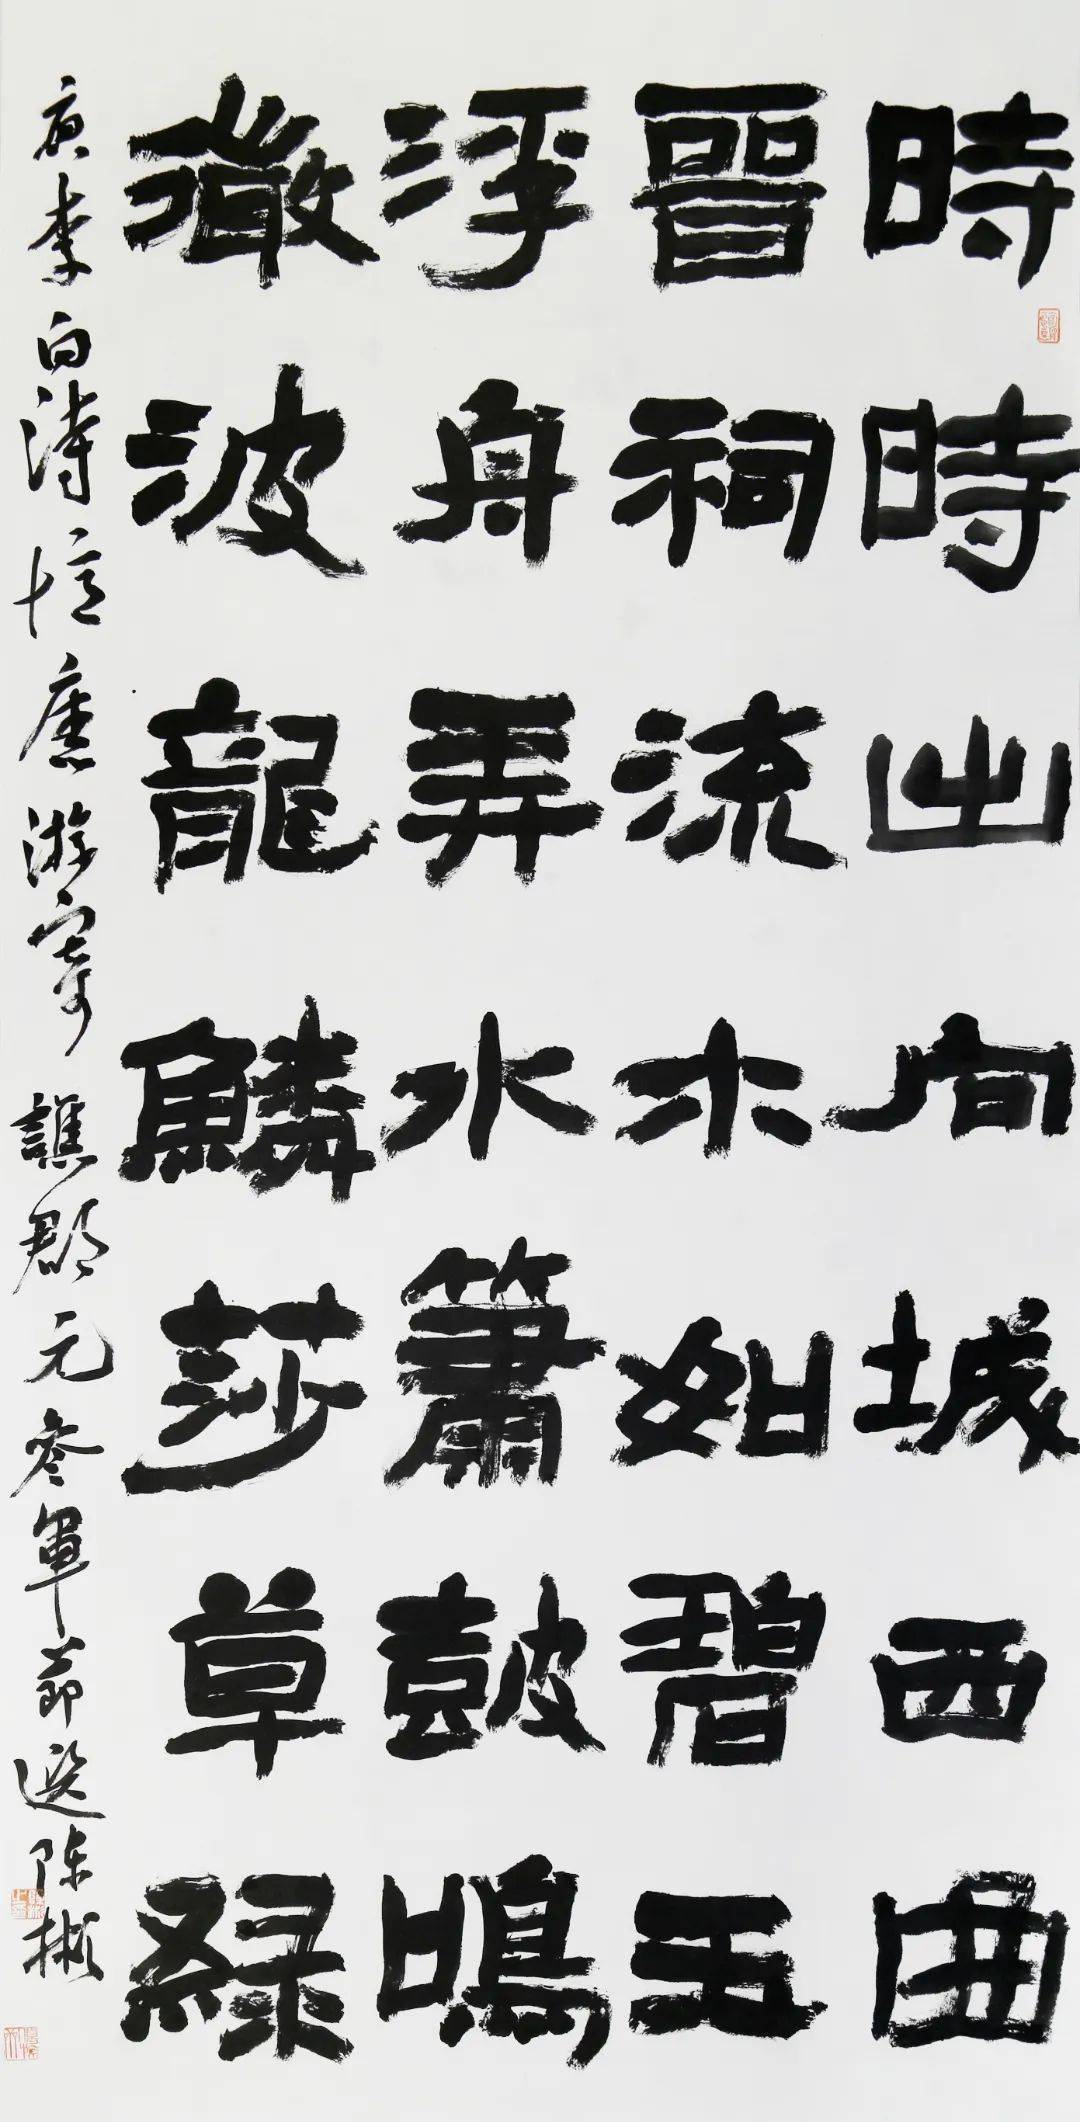 時時出向城西曲
晉祠流水如碧玉
浮舟弄水簫鼓鳴
微波龍鱗莎草綠
唐李白詩憶舊游寄譙郡元參軍節選陳彬